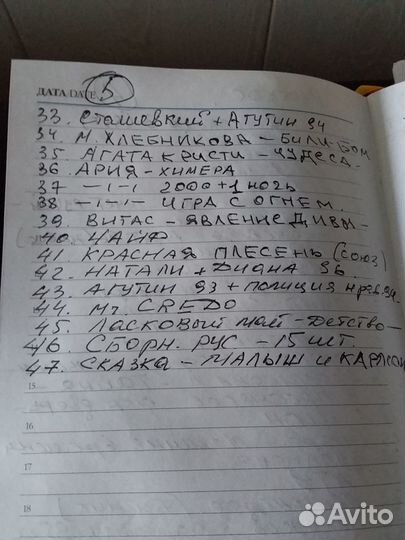 ДАТА DATE 5
33. Сташевкий + Агутин 94
34. М. ХЛЕБНИКОВА - БИЛИ-БОМ
35. АГАТА КРИСТИ - ЧУДЕСА.
36. АРИЯ - ХИМЕРА
37 -1-1- 2000+1 ночь
38 -1-1- ИГРА С ОГНЕМ.
39. ВИТАС - ЯВЛЕНИЕ ДИВЫ -
40. ЧАЙФ
41. КРАСНАЯ ПЛЕСЕНЬ (СОЮЗ)
42. НАТАЛИ + ДИАНА 96
43. АГУТИН 93 + ПОЛИЦИЯ нрав. 94.
44. Мг. CREDO
45. ЛАСКОВЫЙ МАЙ - ДЕТСТВО -
46. СБОРН. РУС - 15 шт.
47. СКАЗКА - МАЛЫШ и КАРЛСОН
15
16
17
18
Avito